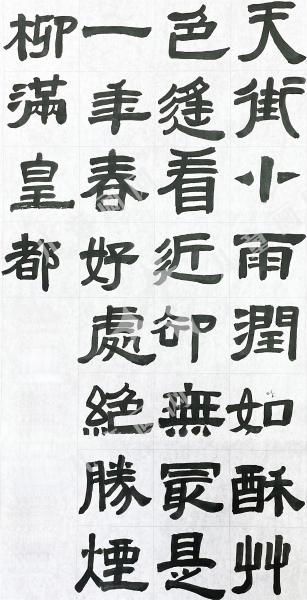 天街小雨潤如酥艸
色遥看近卻無冣是
一年春好處絶勝煙
柳滿皇都